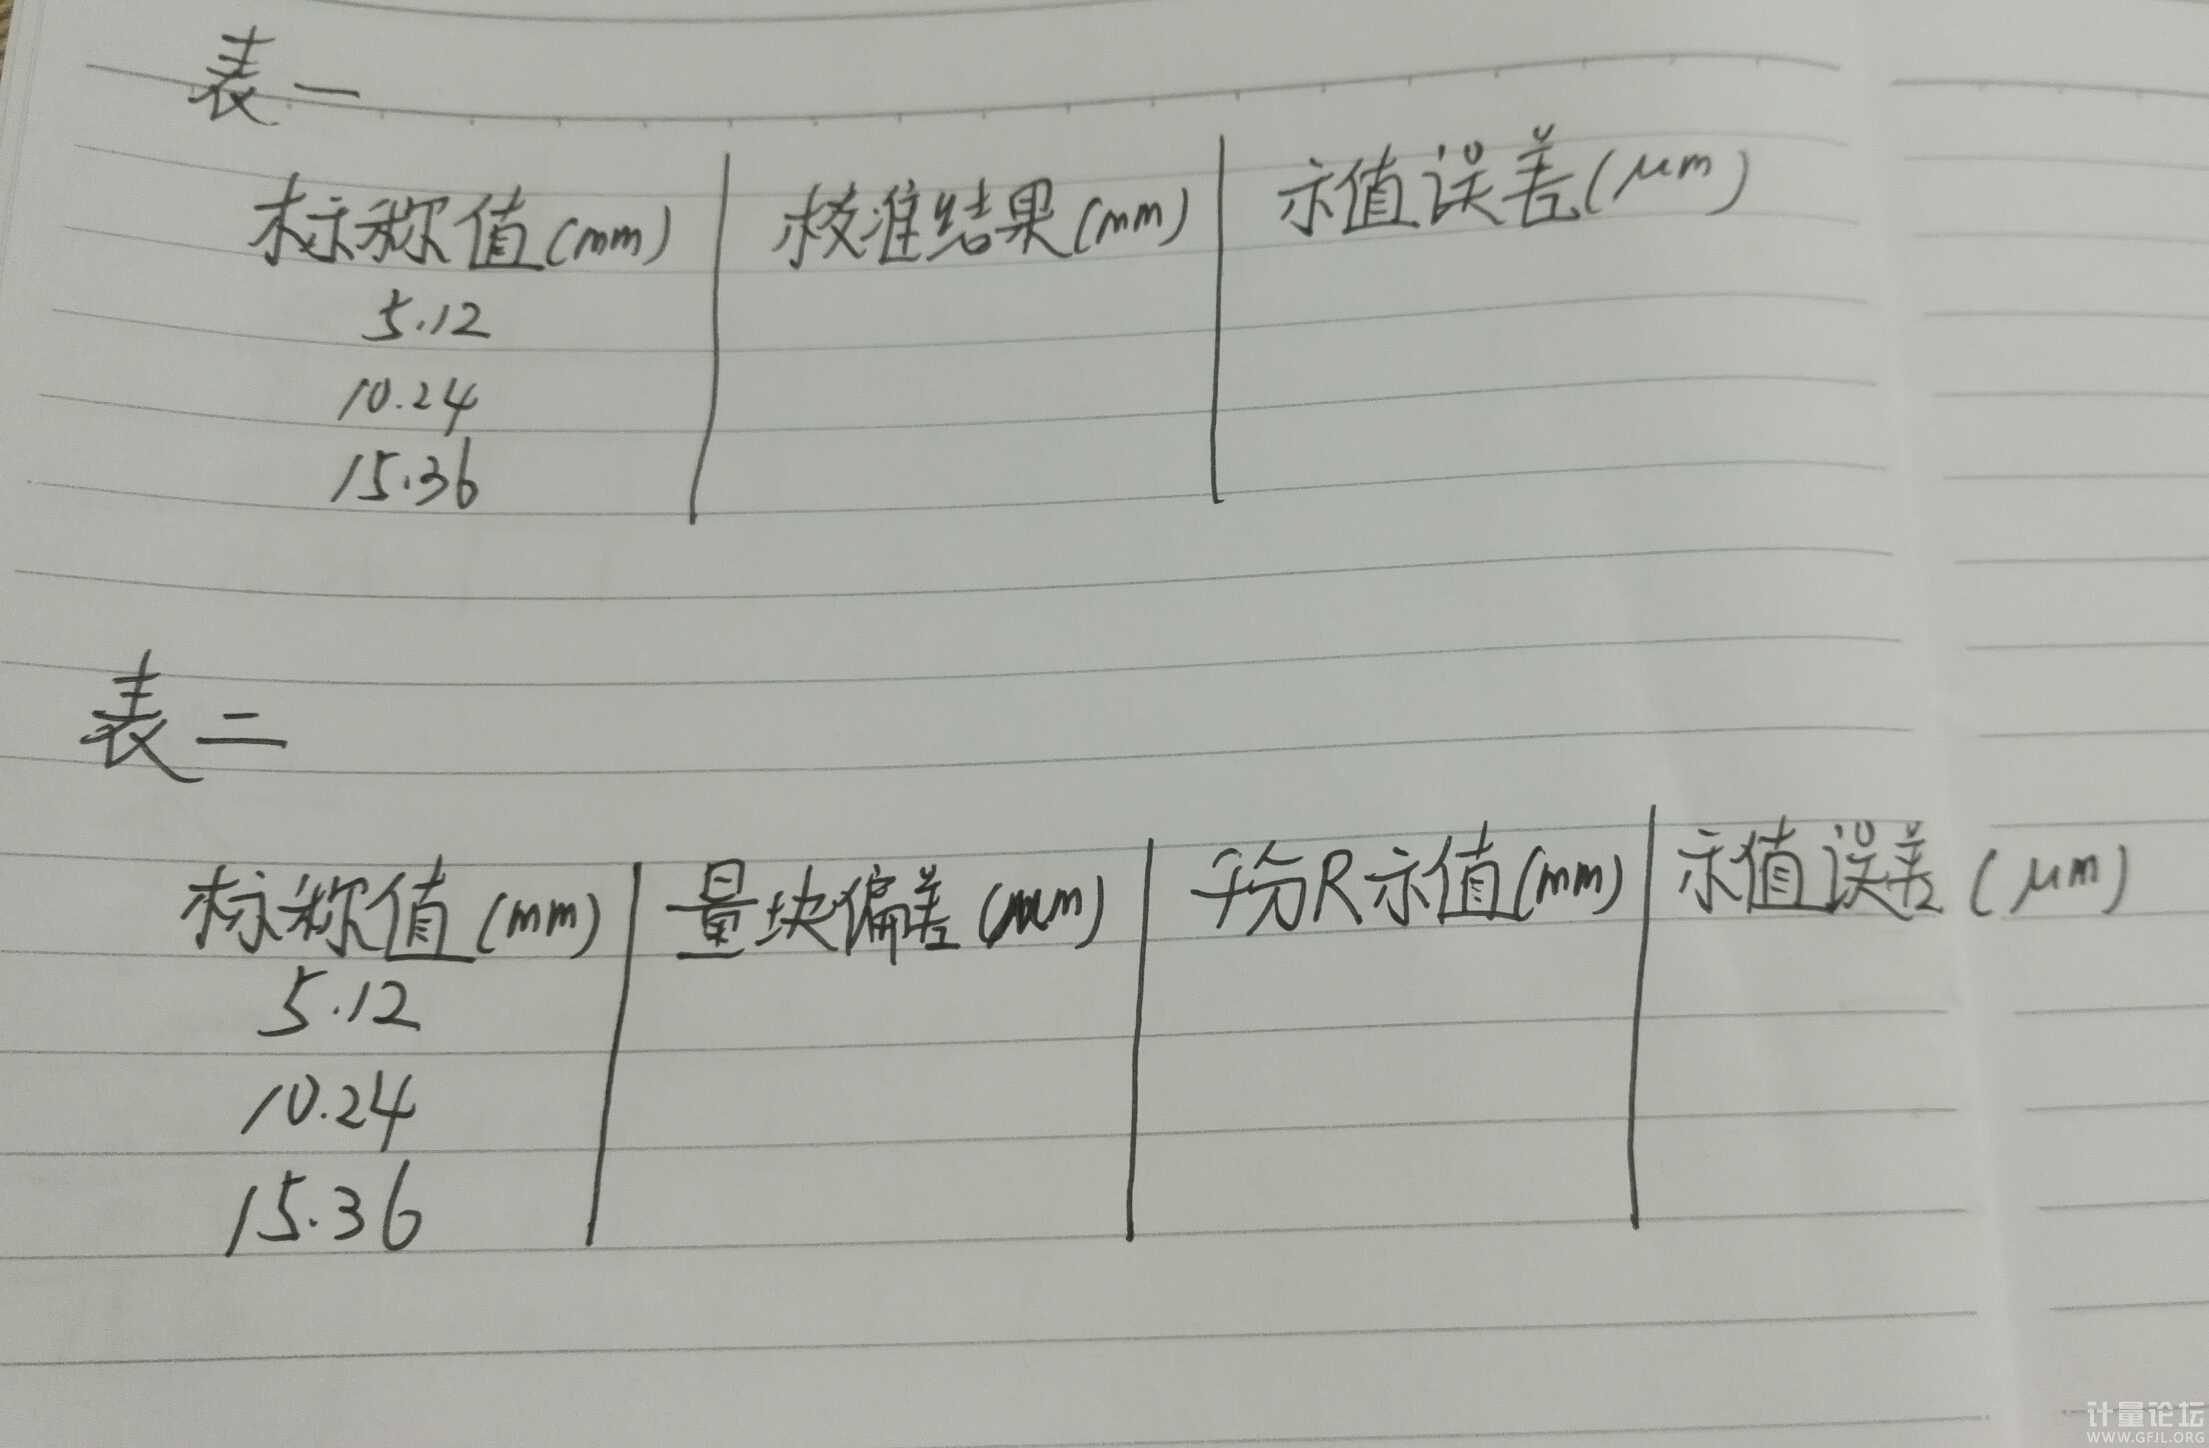 表一
标称值(mm) 校准结果(mm) 示值误差(μm)
5.12
10.24
15.36
表二
标称值(mm) 量块偏差(mm) 千分尺示值(mm) 示值误差(μm)
5.12
10.24
15.36
计量论坛
WWW.GFJL.ORG